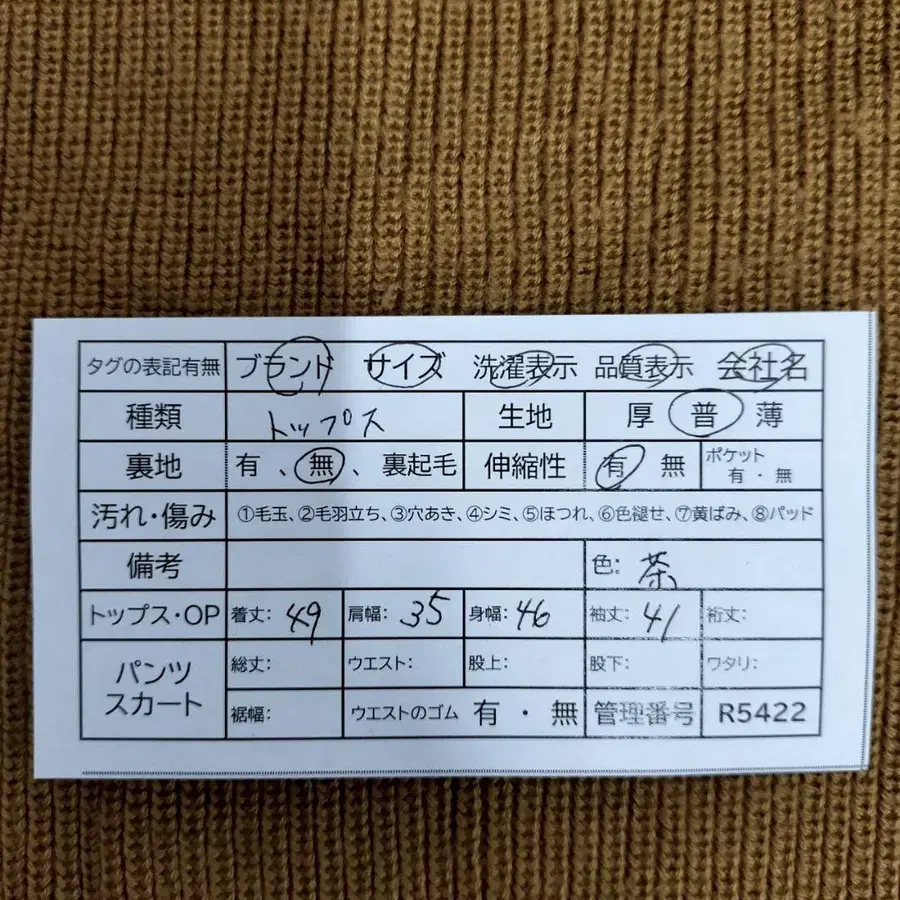 タグの表記有無 ブランド サイズ 洗濯表示 品質表示 会社名
種類 トップス 生地 厚 普 薄
裏地 有、無、裏起毛 伸縮性 有 無 ポケット 有・無
汚れ・傷み ①毛玉、②毛羽立ち、③穴あき、④シミ、⑤ほつれ、⑥色褪せ、⑦黄ばみ、⑧パッド
備考 色: 茶
トップス・OP 着丈: 49 肩幅: 35 身幅: 46 袖丈: 41 裄丈:
パンツ スカート 総丈: ウエスト: 股上: 股下: ワタリ:
裾幅: ウエストのゴム 有・無 管理番号 R5422